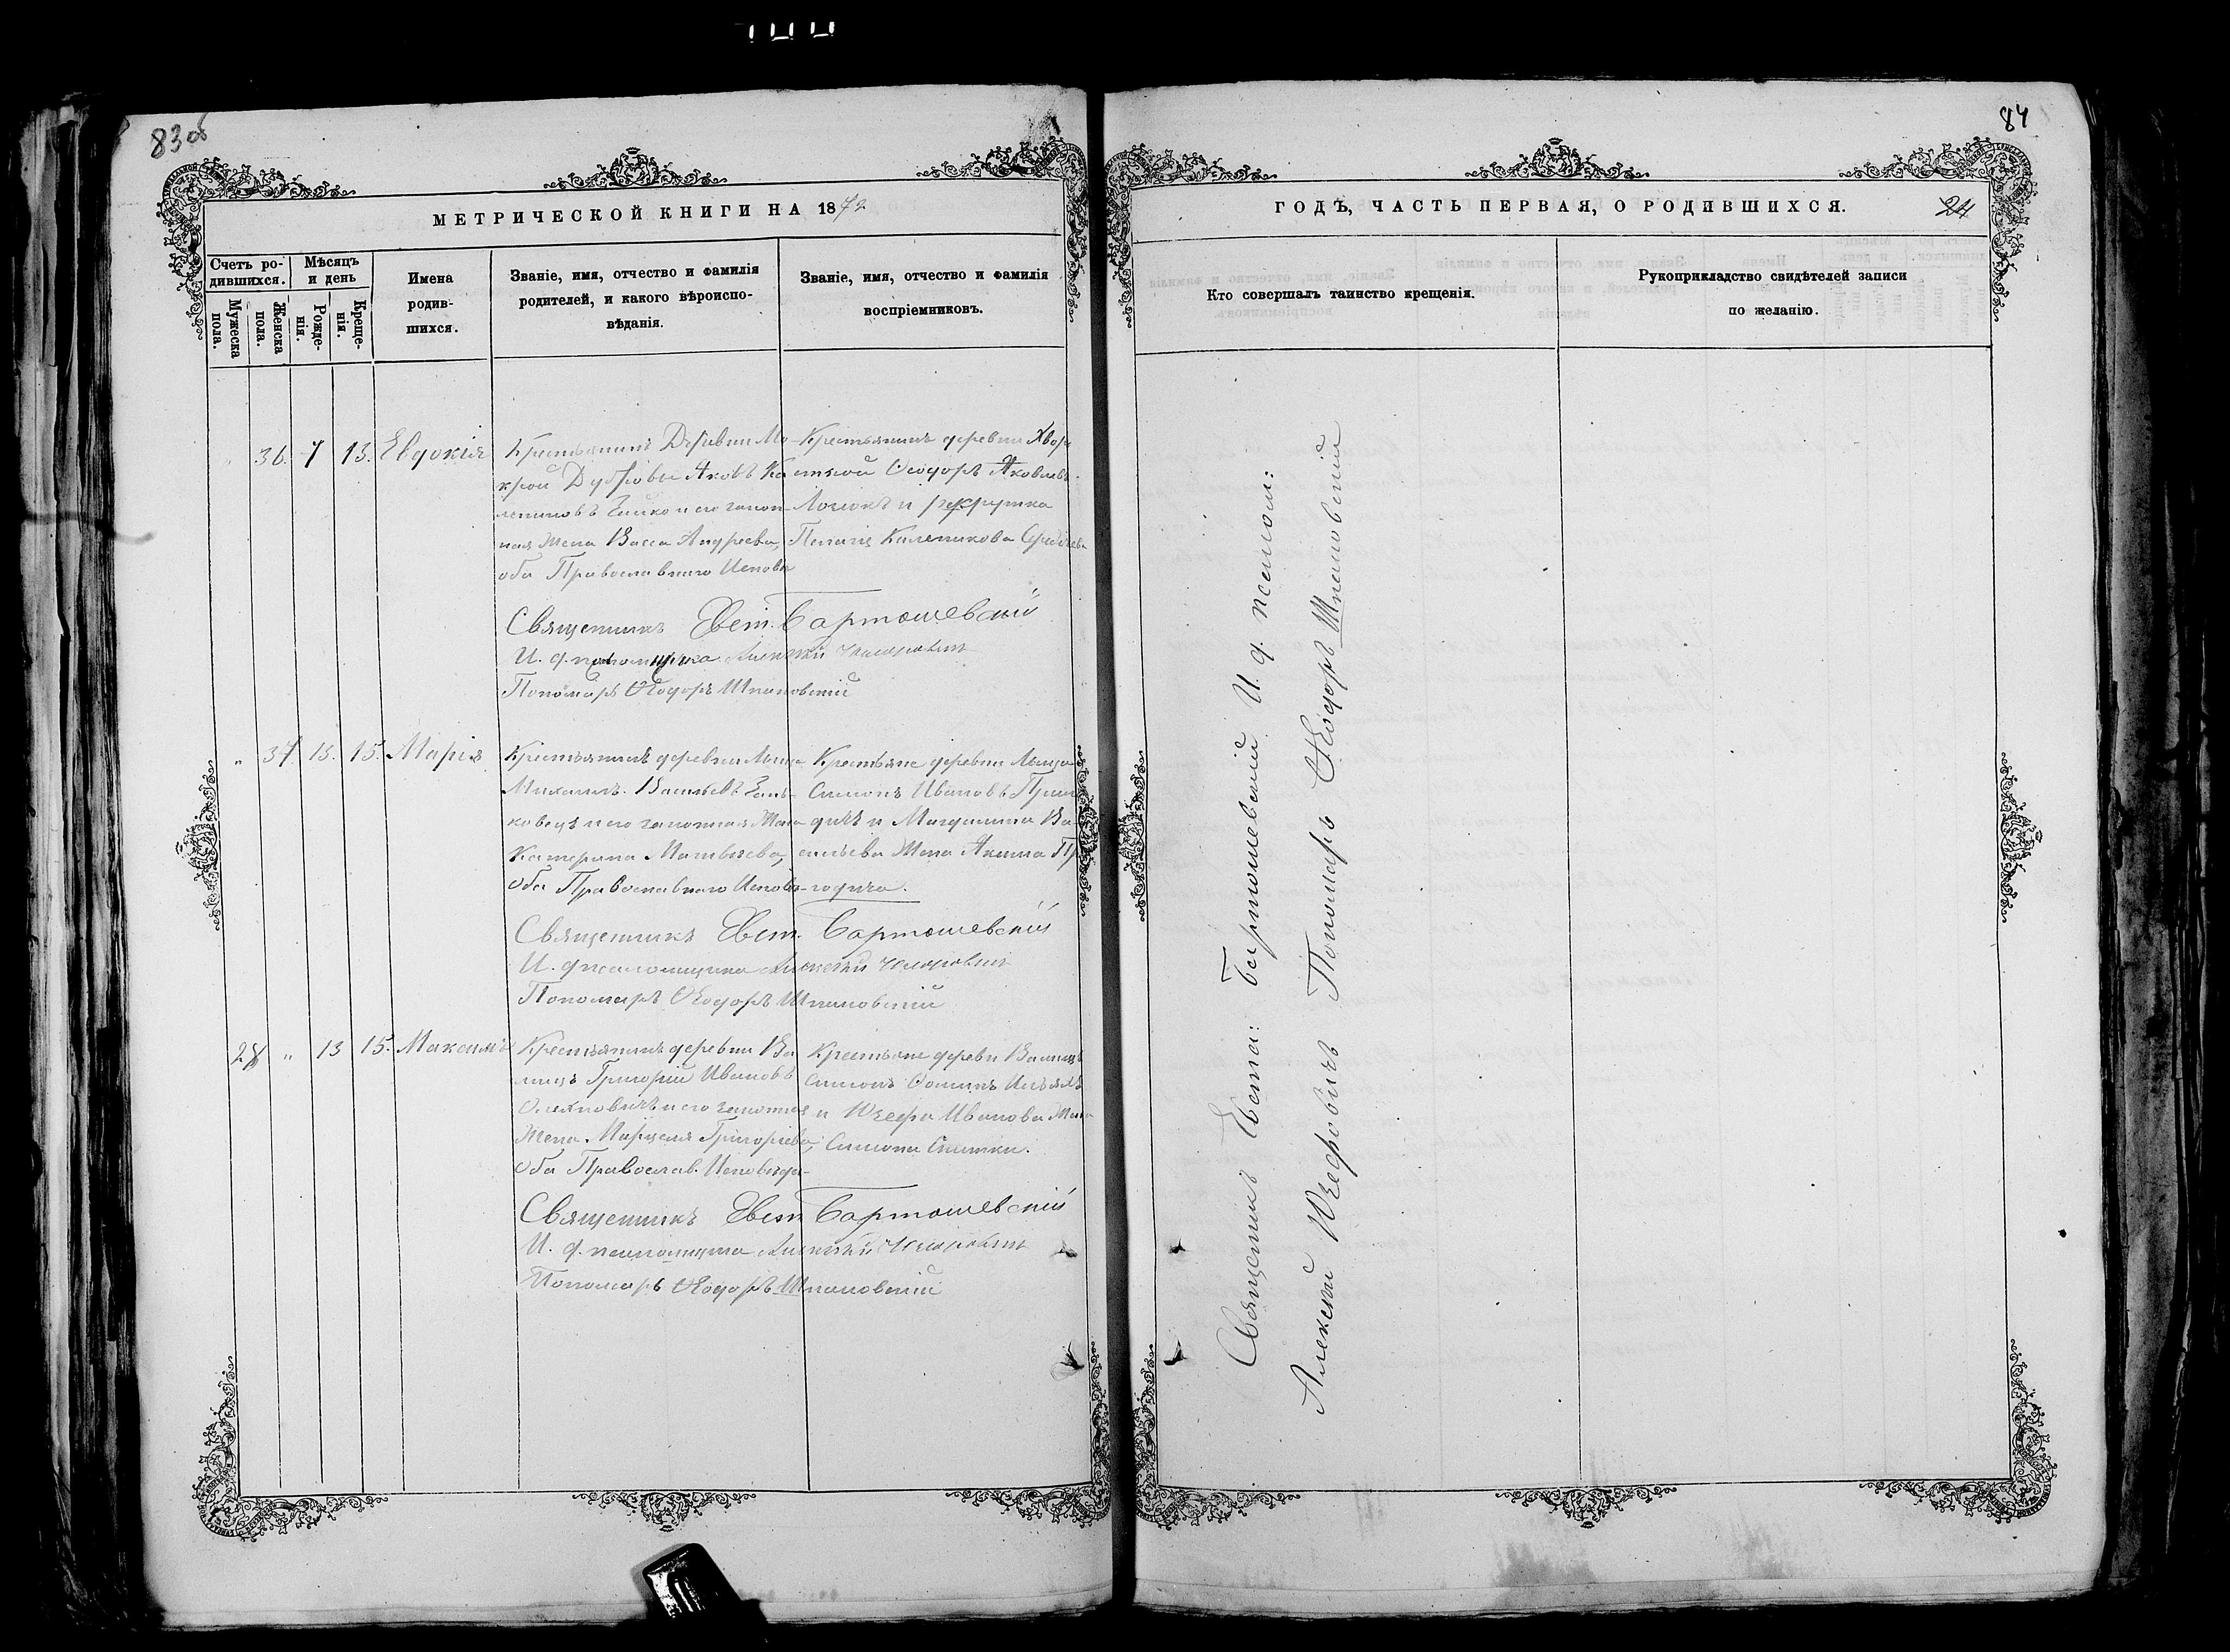 83 об
МЕТРИЧЕСКОЙ КНИГИ НА 1872
Счетъ ро-
дившихся.
Мужеска
пола.
Женска
пола.
Мѣсяцъ
и день
Рожде-
нія.
Креще-
нія.
Имена
родив-
шихся.
Званіе, имя, отчество и фамилія
родителей, и какого вѣроиспо-
вѣданія.
Званіе, имя, отчество и фамилія
воспріемниковъ.
36. 7 13. Евдокія
Крестьянинъ Деревни Мо-
крой Дубровы Яковъ Ка
и его закон-
ная жена Васса Андреева,
оба Православнаго Исповѣ
Крестьянинъ деревни Хворо
Ѳеодоръ Яковлевъ
и рекрутка
Каленикова
Священникъ Евст. Бартошевскій
И. д. псаломщика Алексѣй
Пономарь Ѳеодоръ Шпановскій
" 37 13. 15. Марія
Крестьянинъ деревни Мыща
Михаилъ Васильевъ Зань-
ковецъ и его законная Жена
Катерина Матвѣева,
оба Православнаго Исповѣ-
Крестьяне деревни Мыща
Симонъ Ивановъ
дичъ и Магдалина Ва
сильева Жена Акима Пр
годича.
Священникъ Евст. Бартошевскій
И. д. псаломщика Алексѣй
Пономарь Ѳеодоръ Шпановскій
28 " 13 15. Максимъ
Крестьянинъ деревни Ва
лищъ Григорій Ивановъ
и его законная
Жена Марцеля Григорьева,
оба Православ. Исповѣда-
Крестьяне деревни Валищъ
Симонъ
и Юзефа Иванова Жена
Симона
Священникъ Евст Бартошевскій
И. д. псаломщика Алексѣй
Пономарь Ѳеодоръ Шпановскій
84
ГОДЪ, ЧАСТЬ ПЕРВАЯ, О РОДИВШИХСЯ.
24
Кто совершалъ таинство крещенія.
Рукоприкладство свидѣтелей записи
по желанію.
Священникъ Евста: Бартошевскій И. д. псалом:
Алексѣй Юзефовичъ Пономарь Ѳеодоръ Шпановскій